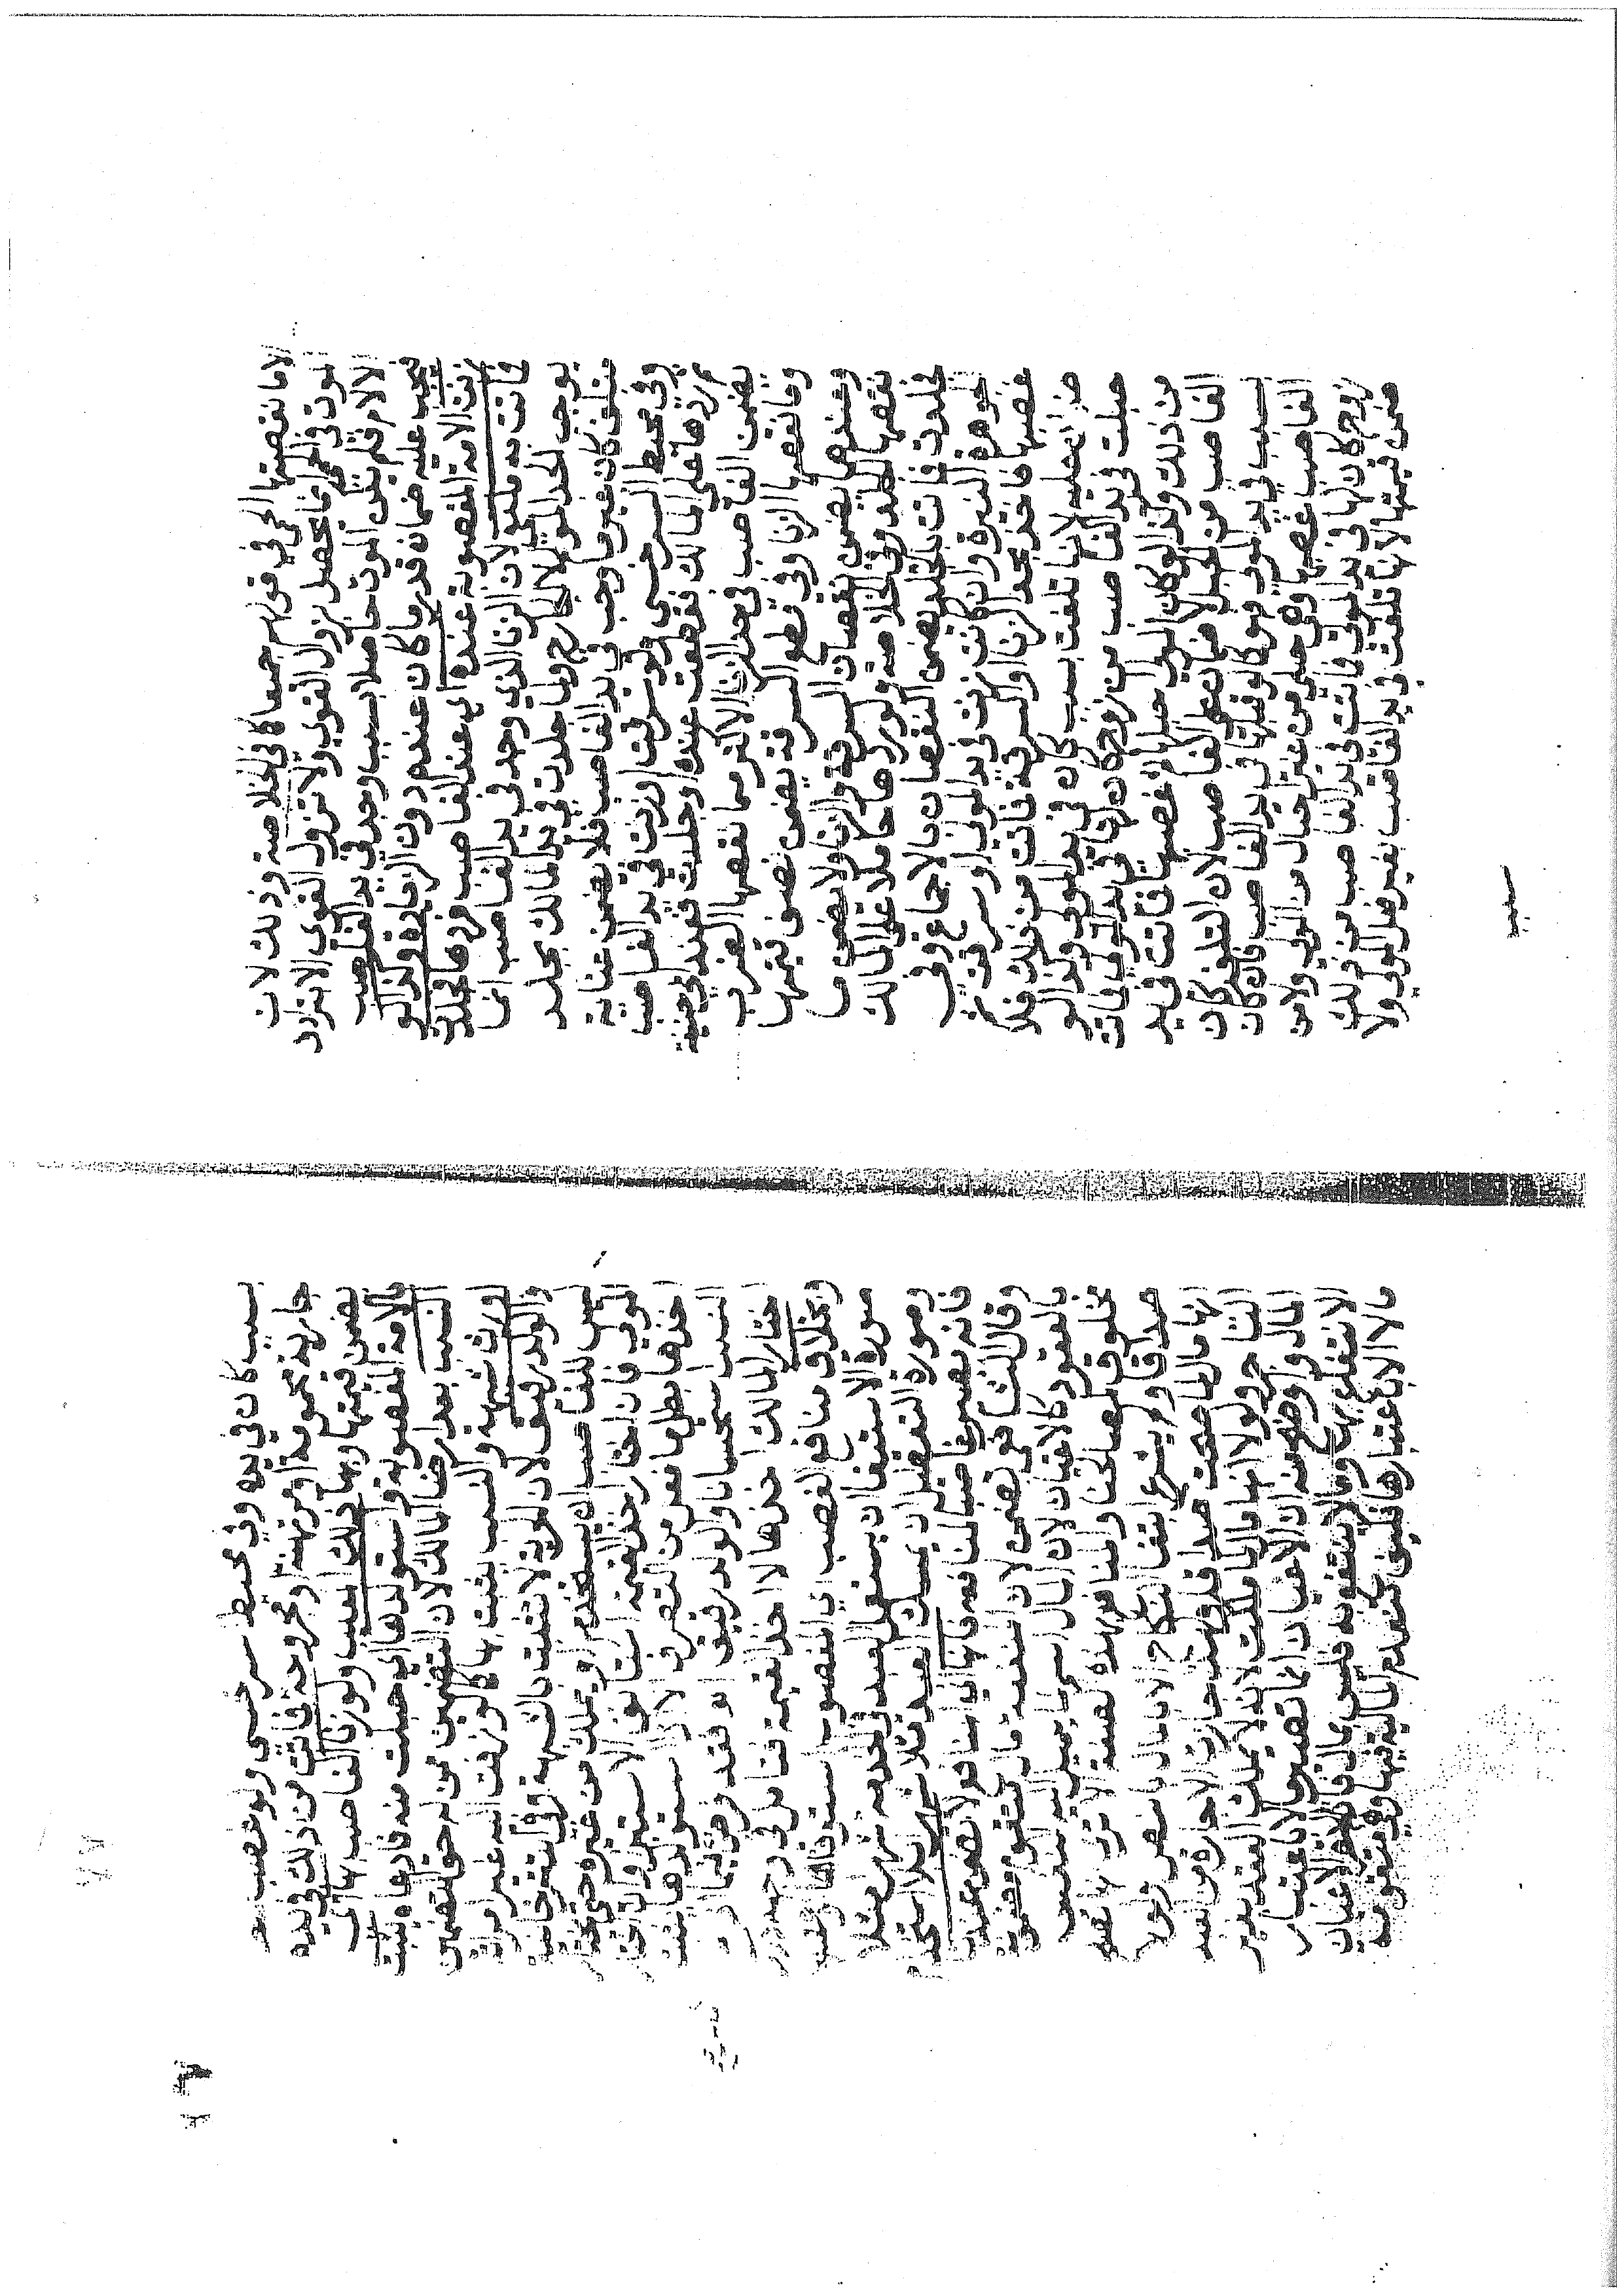 الاما نقصتها الحمى في قولهم جميعا كما في الخلاصة وذلك لان
الموت في الحمى انما يحصل بزوال القوى ولا تزول القوى الا بتزايد
الالام فلم يكن الموت حاصلا بسبب وجد في يد الغاصب
فيجب عليه ضمانه قدر ما كان عنده دون الزيادة ولذا لو
زنت الامة المغصوبة عنده اي عند الغاصب فردها فجلدت
فماتت به لان الزنا الذي وجد في يد الغاصب انما
يوجب الجلد المولم لا الجارح ولما جلدت في يد المالك بجلد
متلف كان غير ما وجب في يد الغاصب فلا يضمن عناية
وفي محيط السرخسي ولو سرقت او زنت في يد الغاصب
ثم ردها على المالك فقطعت عنده او جلدت فعند ابي حنيفة
يضمن الغاصب في حد الزنا الاكثر مما نقصها الضرب
وما نقصها الزنا وفي قطع السرقة يضمن نصف قيمتها
وعندهما يضمن نقصان السرقة والزنا ولا يضمن ما
نقصها الحد وفي الخلاصة ولو ردها حاملا على المالك
فجلدت فماتت بالجلد يضمن النقصان بالاجماع وفي
الجوهرة النيرة وان كانت زنت في يد المولى او سرقت ثم
غصبها فاخذ بحد الزنا او السرقة فماتت من ذلك فلا
ضمان عليه لانها تلفت بسبب كان في يد المولى ولذا لو
حبلت في يد الغاصب من زوج كان لها في يد المولى فماتت
من ذلك ولذا لو كان المولى احبلها ثم غصبها فماتت في يد
الغاصب من الحبل لا ضمان على الغاصب لان التلف كان
بسبب في يد المولى فهو كما لو قتلها في يد الغاصب فان كان
الغاصب غصبها وهي حبلى من غير احبال من المولى ولا من
زوج كان لها في يد المولى فماتت في يد الغاصب من ذلك
ضمن قيمتها لانها تلفت في يد الغاصب بغير فعل المولى ولا
بسبب
بسبب كان في يده وفي محيط سرخسي ولو غصب
جارية محمومة او مجروحة فماتت من ذلك في يده
يضمن قيمتها وبها ذلك العيب ولو زنا الغاصب بها اي
بالامة المغصوبة واستولدها اي حبلت منه فادعاه يثبت
النسب بعد ارضا المالك لان التضمين من له حق التضمين
اورث شبهة والنسب يثبت بها كما لو زفت اليه غير امراته
والولد رقيق لان الحرية لا تثبت بالشبهة وفي
ليس للغاصب ان يستخدم او يملك من غيره حتى يختار
المولى فان اختار اخذ القيمة استانف الاستبراء وان اختار
اخذها بطل ما فعل من التصرف الا اذا استولدها يثبت
النسب استحسانا والولد رقيق
اختار المالك اخذها لا اخذ القيمة فتامل
وبخلاف منافع الغصب اي المغصوب استوفاها
صورة الاستيفا ان يستعمل العبد في الخدمة شهرا مثلا
وصورة التعطيل ان يمسك العبد مثلا شهرا بلا استخدام
فانه يصير غاصبا لمنافعه فانها اي المنافع لا تضمن عندنا
وقال الشافعي تضمن لان المنفعة مال متقوم مضمون
بالعقود كالاعيان لان المال اسم لما يميل اليه النفس
مخلوق لمصالحنا والمنافع بهذه الصفة الا ترى
صداقا ولم يشرع ابتغا النكاح الا بالمال بالنص ولولا
انها مال لما صحت صداقا ولهذا جازت الاجارة من العبد
التاجر ولولا انها مال لما ملك لانه لا يملك العقد بغير
المال ولان الاعيان انما تصير مالا باعتبار
الانتفاع بها وما لا ينتفع به فليس بمال فاذا لم تصر الاعيان
مالا الا باعتبارها فكيف تنعدم المالية فيها وهي متقومة